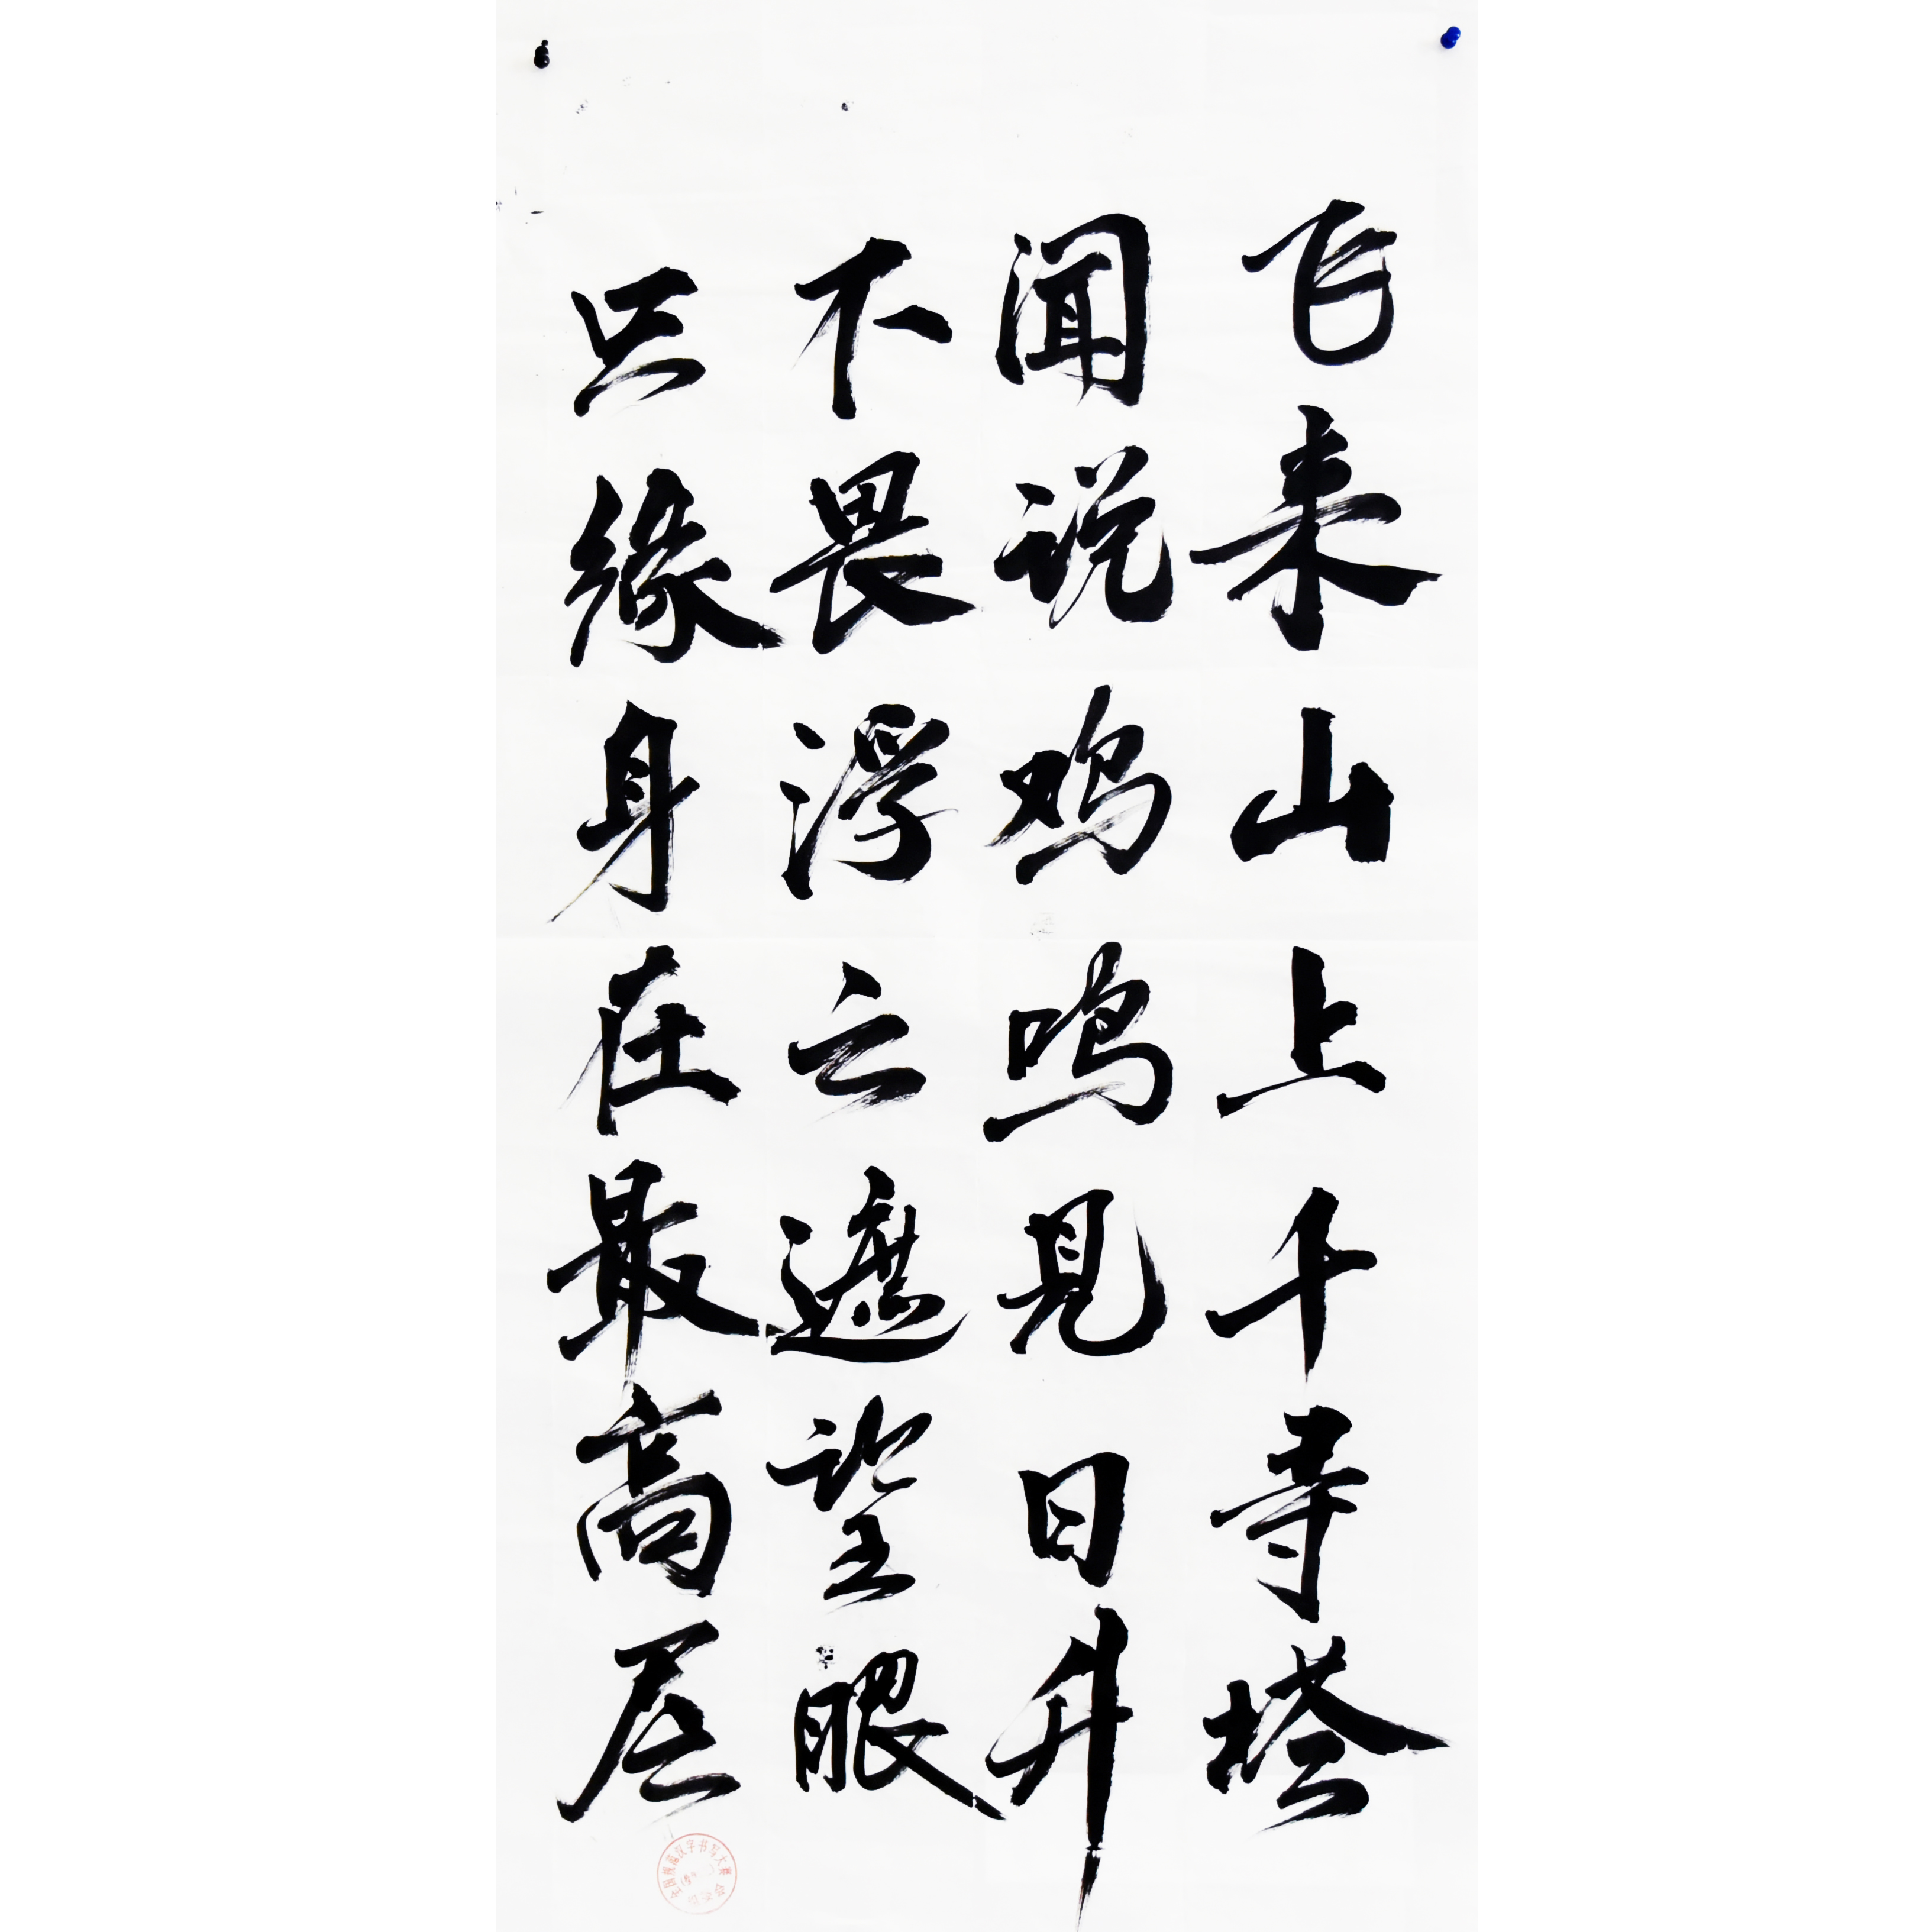 飞来山上千寻塔
闻说鸡鸣见日升
不畏浮云遮望眼
只缘身在最高层